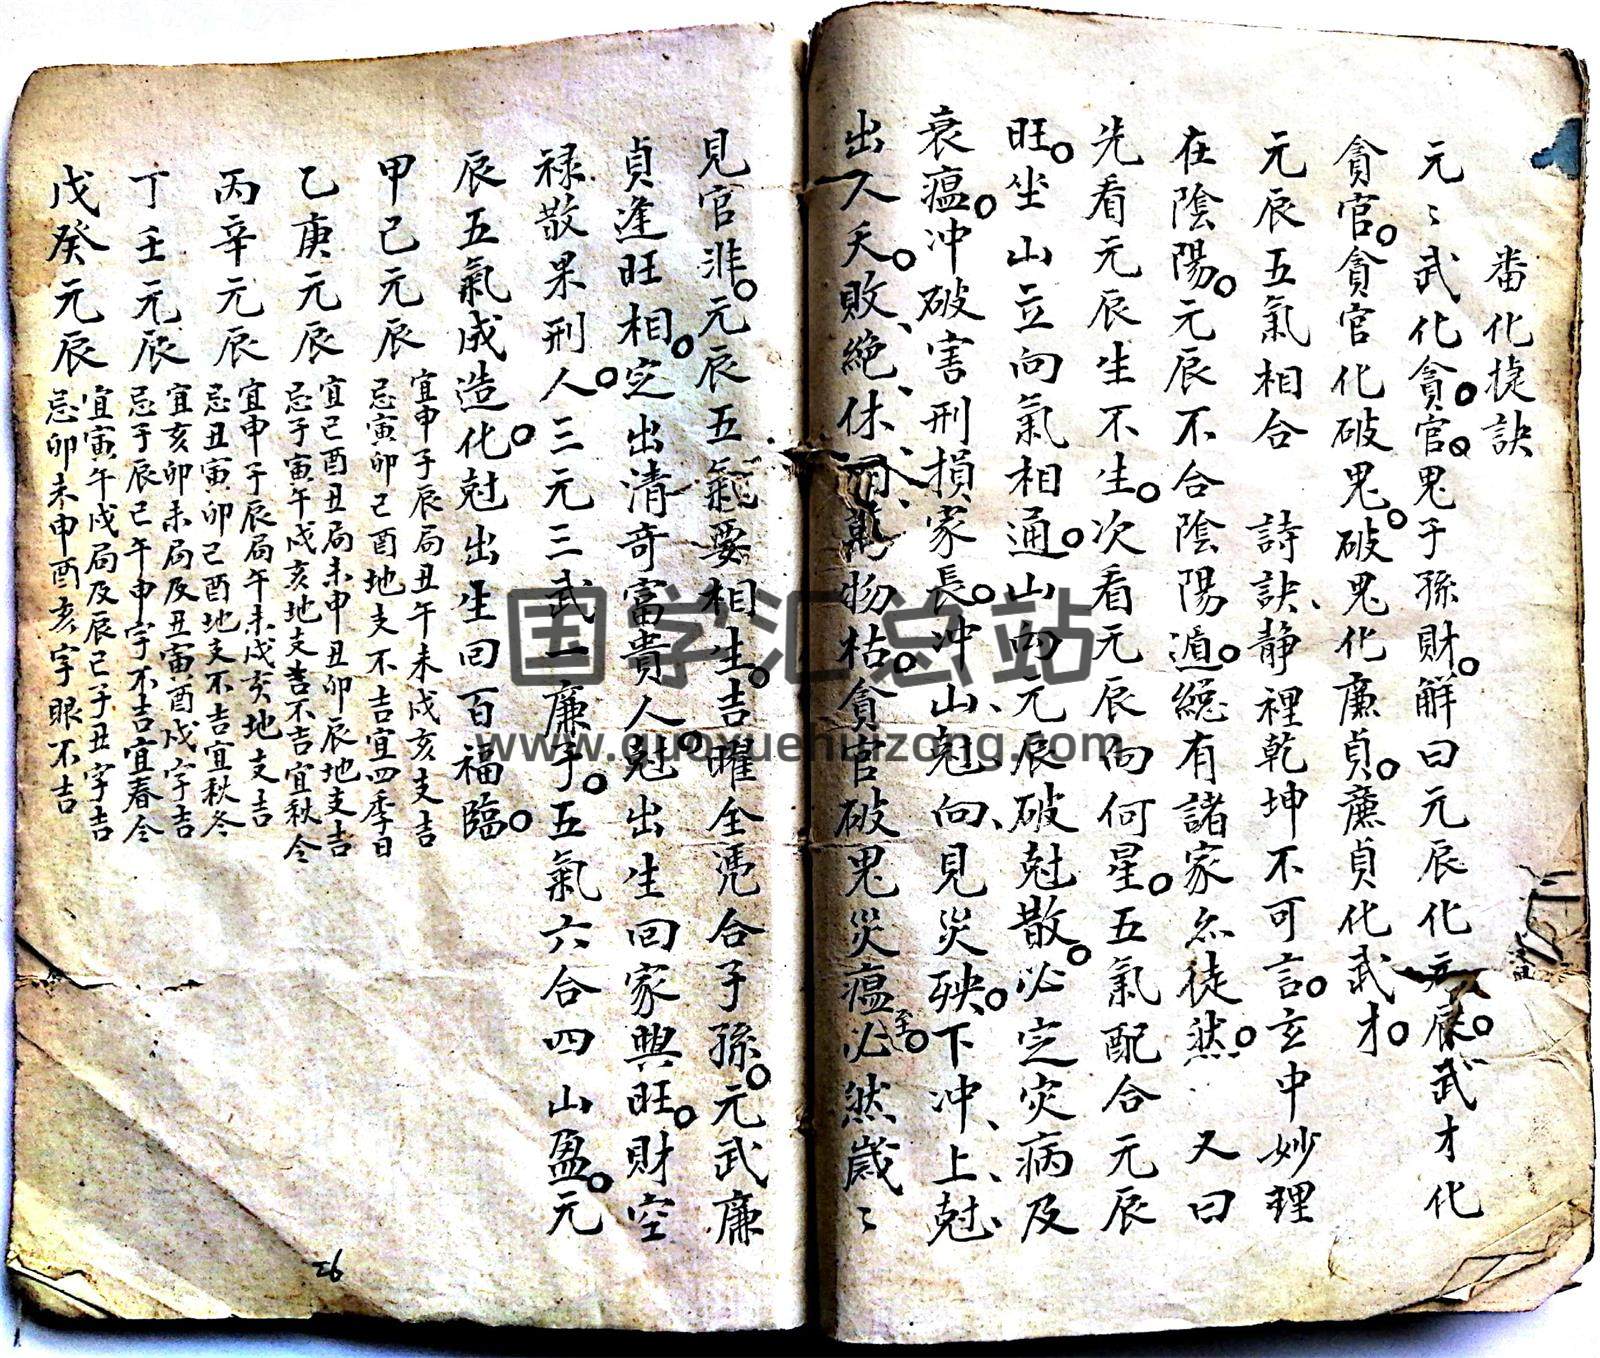 番化捷訣
元〻武化貪。貪官。鬼子孫財。解曰元辰化元辰。武才化
貪官。貪官化破鬼。破鬼化廉貞。廉貞化武才。
元辰五氣相合　詩訣、静裡乾坤不可言。玄中妙理
在陰陽。元辰不合陰陽遁。總有諸家亦徒然　又曰
先看元辰生不生。次看元辰向何星。五氣配合元辰
旺。坐山立向氣相通。山向元辰破尅散。必定灾病及
衰瘟。冲破害刑損家長。冲山、尅向、見災殃。下冲、上尅、
出人夭。敗、絶、休、囚、萬物枯。貪官破鬼災瘟至。必然歲〻
見官非。元辰五氣要相生。吉曜全凴合子孫。元武廉
貞逢旺相。定出清奇富貴人。尅出生回家興旺。財空
禄散果刑人。三元三武一廉子。五氣六合四山盈。元
辰五氣成造化。尅出生回百福臨。
甲己元辰 宜申子辰局丑午未戌亥支吉
忌寅卯己酉地支不吉宜四季日
乙庚元辰 宜巳酉丑局未申丑卯辰地支吉
忌子寅午戌亥地支吉不吉宜秋令
丙辛元辰 宜申子辰局午未戌亥地支吉
忌丑寅卯己酉地支不吉宜秋冬
丁壬元辰 宜亥卯未局及丑寅酉戌字吉
忌子辰己午申字不吉宜春令
戊癸元辰 宜寅午戌局及辰己子丑字吉
忌卯未申酉亥字眼不吉
26
国学汇总站
www.guoxuehuizong.com